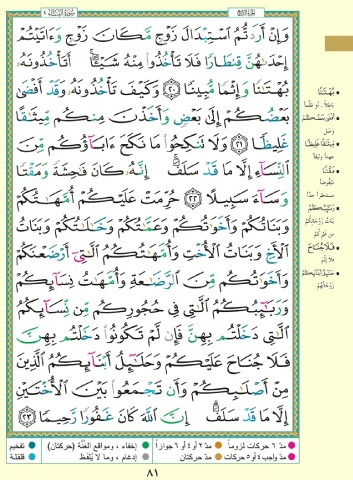 سُورَةُ النِّسَاءِ ٤
الجُزْءُ الرَّابِعُ
وَإِنْ أَرَدتُّمُ ٱسْتِبْدَالَ زَوْجٍ مَّكَانَ زَوْجٍ وَءَاتَيْتُمْ
إِحْدَىٰهُنَّ قِنطَارًا فَلَا تَأْخُذُوا۟ مِنْهُ شَيْـًٔا ۚ أَتَأْخُذُونَهُۥ
بُهْتَـٰنًا وَإِثْمًا مُّبِينًا ٢٠ وَكَيْفَ تَأْخُذُونَهُۥ وَقَدْ أَفْضَىٰ
بَعْضُكُمْ إِلَىٰ بَعْضٍ وَأَخَذْنَ مِنكُم مِّيثَـٰقًا
غَلِيظًا ٢١ وَلَا تَنكِحُوا۟ مَا نَكَحَ ءَابَآؤُكُم مِّنَ
ٱلنِّسَآءِ إِلَّا مَا قَدْ سَلَفَ ۚ إِنَّهُۥ كَانَ فَـٰحِشَةً وَمَقْتًا
وَسَآءَ سَبِيلًا ٢٢ حُرِّمَتْ عَلَيْكُمْ أُمَّهَـٰتُكُمْ
وَبَنَاتُكُمْ وَأَخَوَٰتُكُمْ وَعَمَّـٰتُكُمْ وَخَـٰلَـٰتُكُمْ وَبَنَاتُ
ٱلْأَخِ وَبَنَاتُ ٱلْأُخْتِ وَأُمَّهَـٰتُكُمُ ٱلَّـٰتِىٓ أَرْضَعْنَكُمْ
وَأَخَوَٰتُكُم مِّنَ ٱلرَّضَـٰعَةِ وَأُمَّهَـٰتُ نِسَآئِكُمْ
وَرَبَـٰٓئِبُكُمُ ٱلَّـٰتِى فِى حُجُورِكُم مِّن نِّسَآئِكُمُ
ٱلَّـٰتِى دَخَلْتُم بِهِنَّ فَإِن لَّمْ تَكُونُوا۟ دَخَلْتُم بِهِنَّ
فَلَا جُنَاحَ عَلَيْكُمْ وَحَلَـٰٓئِلُ أَبْنَآئِكُمُ ٱلَّذِينَ
مِنْ أَصْلَـٰبِكُمْ وَأَن تَجْمَعُوا۟ بَيْنَ ٱلْأُخْتَيْنِ
إِلَّا مَا قَدْ سَلَفَ ۗ إِنَّ ٱللَّهَ كَانَ غَفُورًا رَّحِيمًا ٢٣
بُهْتَـٰنًا
مِّيثَـٰقًا غَلِيظًا
مَقْتًا
رَبَـٰٓئِبُكُمُ
فَلَا جُنَاحَ
حَلَـٰٓئِلُ أَبْنَآئِكُمُ
مدّ ٦ حركات لزوماً مدّ ٢ أو ٤ أو ٦ جوازاً إخفاء، ومواقع الغُنَّة (حركتان) تفخيم
مدّ واجب ٤ أو ٥ حركات مدّ حركتان إدغام، وما لا يُلفَظ قلقلة
٨١